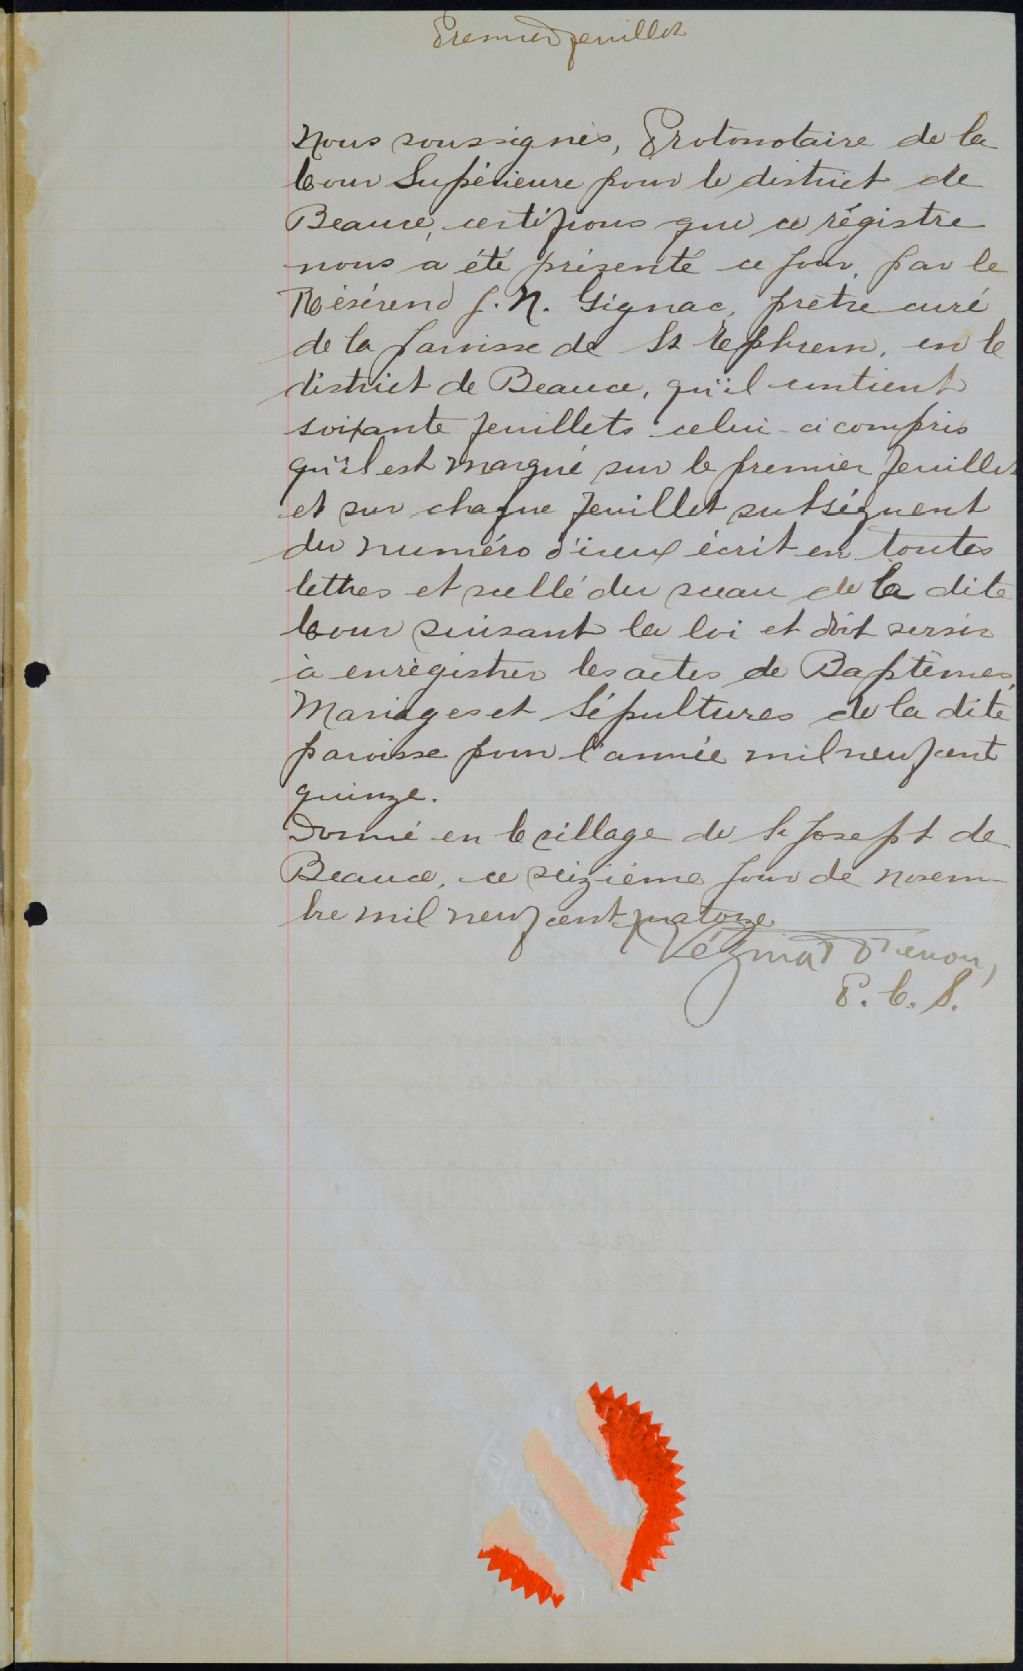 Premier feuillet
Nous soussignés, Protonotaire de la
Cour Supérieure pour le district de
Beauce, certifions que ce régistre
nous a été présenté ce jour, par le
Révérend J. N. Gignac, prêtre curé
de la paroisse de St Ephrem, en le
district de Beauce, qu'il contient
soixante feuillets celui-ci compris
qu'il est marqué sur le premier feuillet
et sur chaque feuillet subséquent
du numéro d'iceux écrit en toutes
lettres et scellé du sceau de la dite
Cour suivant la loi et doit servir
à enrégistrer les actes de Baptêmes,
Mariages et Sépultures de la dite
paroisse pour l'année mil neuf cent
quinze.
Donné en le village de St Joseph de
Beauce, ce seizième jour de novem-
bre mil neuf cent quatorze.
Vézina
P. C. S.